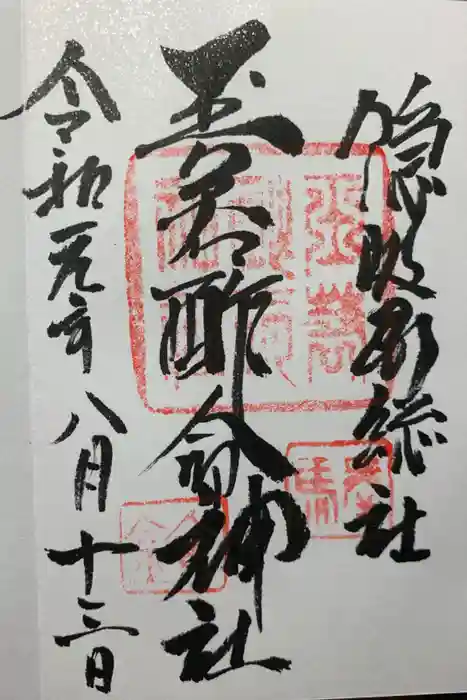 隠岐国総社
玉若酢命神社
令和元年八月十三日